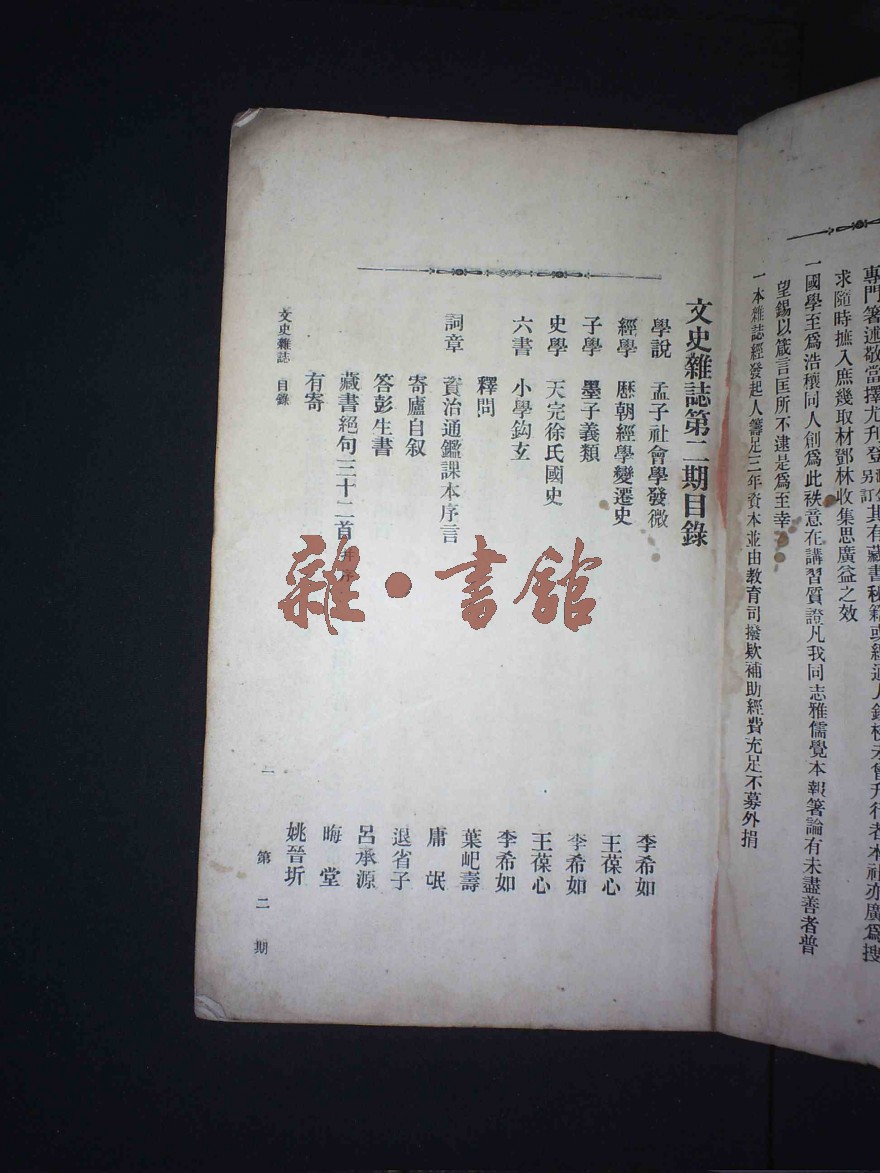 專門箸述敬當擇尤刊登另訂其有藏書秘籍或經通人鈔校未曾刊行者本社亦廣爲搜
求隨時摭入庶幾取材鄧林收集思廣益之效
一國學至爲浩穰同人創爲此袟意在講習質證凡我同志雅儒覺本報箸論有未盡善者普
望錫以箴言匡所不逮是爲至幸
一本雜誌經發起人籌足三年資本並由教育司撥欵補助經費充足不募外捐
文史雜誌第二期目錄
學說 孟子社會學發微 李希如
經學 歷朝經學變遷史 王葆心
子學 墨子義類 李希如
史學 天完徐氏國史 王葆心
六書 小學鈎玄 李希如
釋問 葉屺壽
詞章 資治通鑑課本序言 庸氓
寄廬自叙 退省子
答彭生書 呂承源
藏書絕句三十二首并序 晦堂
有寄 姚晉圻
文史雜誌 目錄 一 第二期
雜·書館